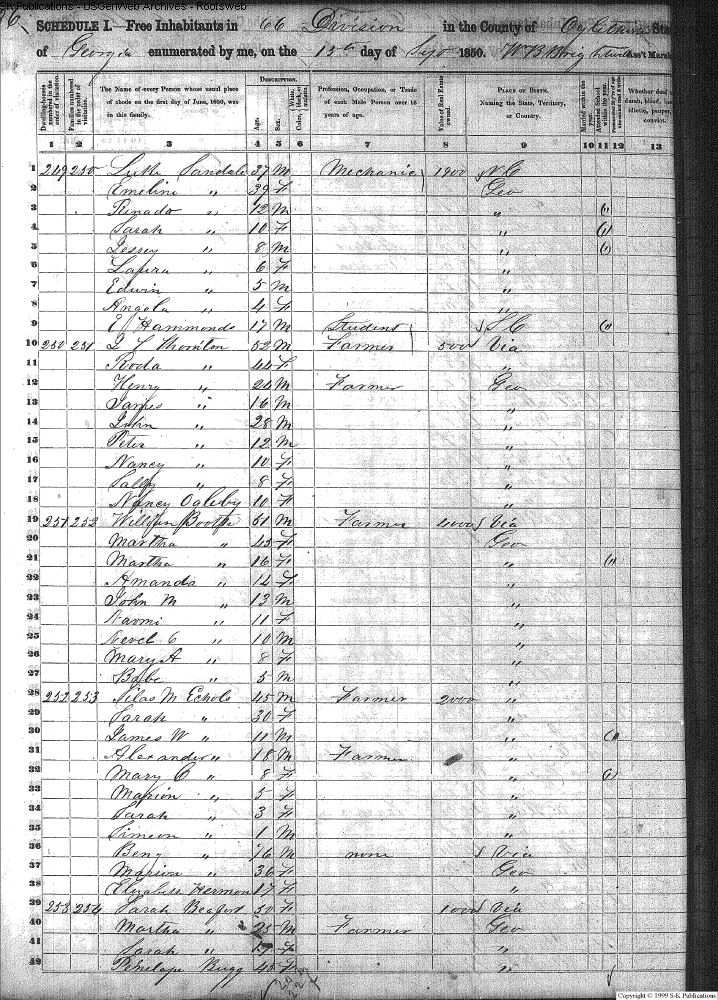 SK Publications - USGenWeb Archives - Rootsweb
SCHEDULE I.—Free Inhabitants in 66 Division in the County of
of Georgia enumerated by me, on the 15th day of 1850. Ass't Marshal
Dwelling-houses numbered in the order of visitation.
Families numbered in the order of visitation.
The Name of every Person whose usual place of abode on the first day of June, 1850, was in this family.
Description.
Age.
Sex.
White, black, or mulatto.
Color,
Profession, Occupation, or Trade of each Male Person over 15 years of age.
Value of Real Estate owned.
Place of Birth.
Naming the State, Territory, or Country.
Married within the year.
Attended School within the year.
Whether deaf and dumb, blind, insane, idiotic, pauper, or convict.
1 2 3 4 5 6 7 8 9 10 11 12 13
1 249 250 Luke 37 M Mechanic 1900 N C
2 Emeline " 39 F Geo
3 " 12 M " "
4 Sarah " 10 F " "
5 " 8 M " "
6 Laura " 6 F "
7 Edwin " 5 M "
8 " 4 F "
9 E Hammonds 17 M Student S C "
10 250 251 Thornton 52 M Farmer 500 Via
11 Roda " 44 F "
12 Henry " 24 M Farmer Geo
13 James " 16 M "
14 John " 28 M "
15 Peter " 12 M "
16 Nancy " 10 F "
17 Sally " 8 F "
18 Nancy Oglesby 10 F "
19 251 252 William Booth 51 M Farmer 4000 Via
20 Martha " 45 F Geo
21 Martha " 16 F " "
22 Amanda " 14 F "
23 John M " 13 M "
24 Naomi " 11 F "
25 C " 10 M "
26 Mary A " 8 F "
27 Babe " 5 M "
28 252 253 Silas M Echols 45 M Farmer 2000 "
29 Sarah " 30 F "
30 James W " 11 M " "
31 Alexander " 18 M Farmer "
32 Mary C " 8 F " "
33 Marion " 5 F "
34 Sarah " 3 F "
35 Simeon " 1 M "
36 Benj " 76 M none Via
37 Marion " 36 F Geo
38 Elizabeth Hermon 17 F "
39 253 254 Sarah 50 F 1000 Via
40 Martha " 25 M Farmer Geo
41 Sarah " F "
42 Penelope Bugg 45 F "
Copyright © 1999 S-K Publications